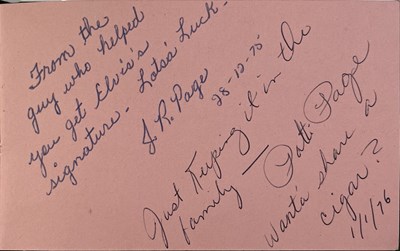 From the
guy who helped
you get Elvis's
signature - Lotsa' Luck -
J. R. Page
28-12-75
Just Keeping it in the
family —
Patti Page
Wanta' share a
cigar?
1/1/76